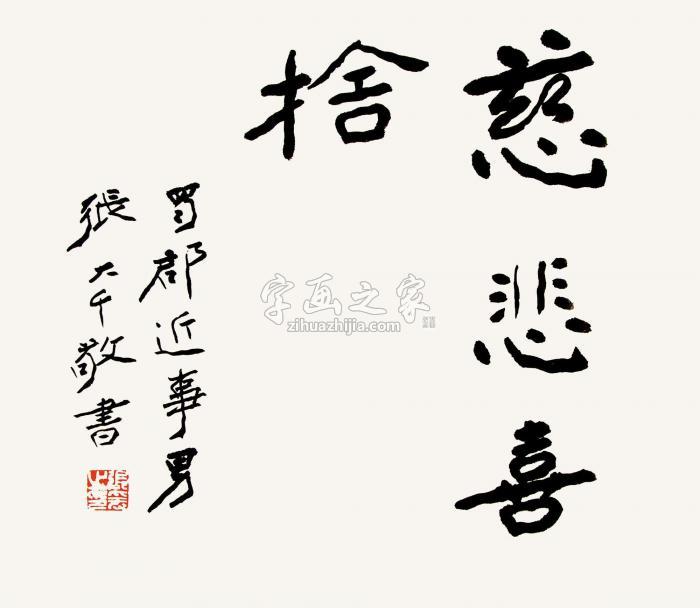 慈悲喜
捨
蜀郡近事男
張大千敬書
字画之家
zihuazhijia.com